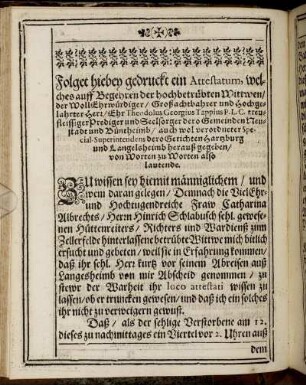 Folget hiebey gedruckt ein Attestatum, wel-
ches auff Begehren der hochbetrübten Wittwen/
der WollEhrwürdiger / Großachtbahrer und Hochge-
lahrter Herr/Ehr Theodosius Georgius Tappius P. L. C. treu-
fleissiger Prediger und Seelsorger dero Gemeinden Neu-
stadt und Büntheimb / auch wol verordneter Spe-
cial-Superintendens dero Gerichten Hartzburg
und Langelsheimb herauß gegeben/
von Worten zu Worten also
lautende.
ZU wissen sey hiemit männiglichem / und
wem daran gelegen / Demnach die VielEhr-
und Hochtugendreiche Fraw Catharina
Albrechts / Herrn Hinrich Schlabusch sehl. gewese-
nen Hüttenreiters / Richters und Wardienß zum
Zellerfelde hinterlassene betrübte Wittwe mich bitlich
ersucht und gebeten / weil sie in Erfahrung kommen/
daß ihr sehl. Herr kurtz vor seinem Abreisen auß
Langesheimb von mir Abscheid genommen / zu
stewr der Warheit ihr loco attestati wissen zu
lassen / ob er truncken gewesen / und daß ich ein solches
ihr nicht zu verweigern gewust.
Daß / als der sehlige Verstorbene am 12.
dieses zu nachmittages ein Viertel vor 2. Uhren auß
dem